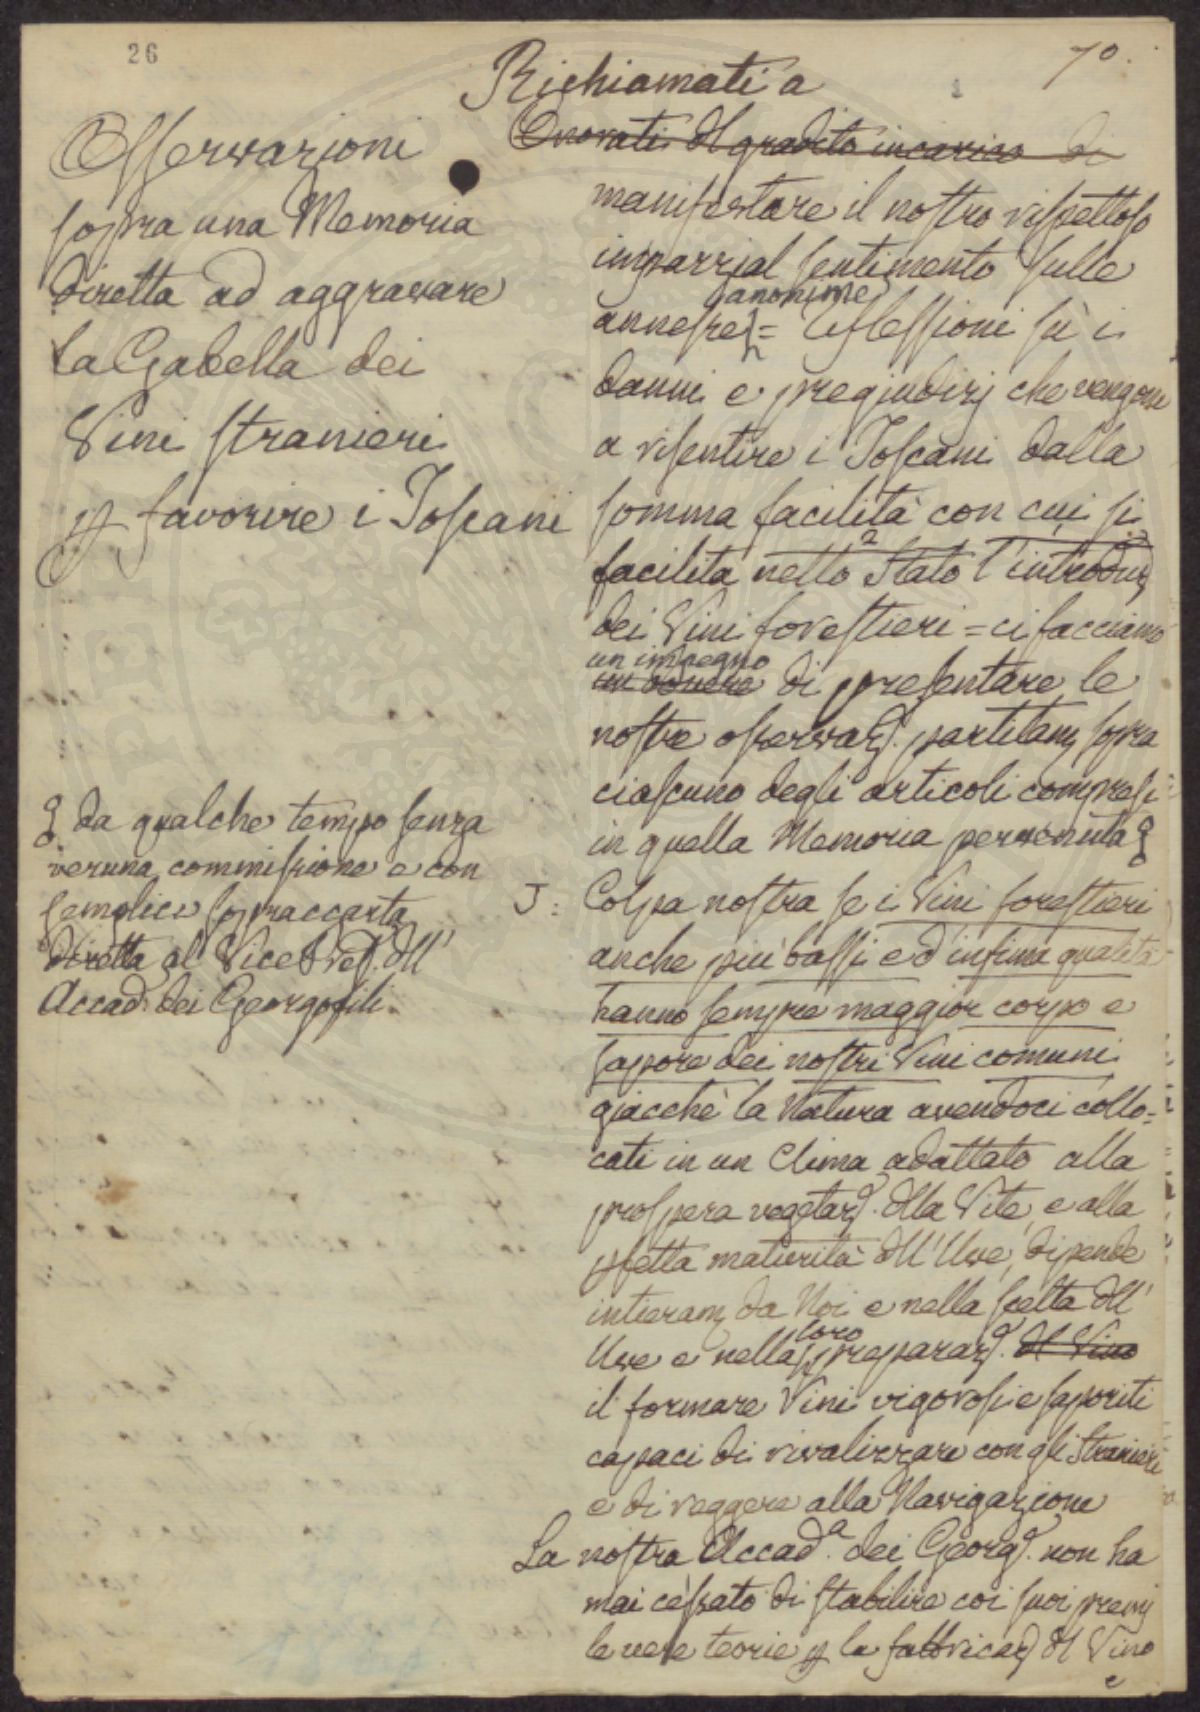 26
70.
Osservazioni
sopra una Memoria
diretta ad aggravare
la Gabella dei
Vini stranieri
p favorire i Toscani
da qualche tempo senza
veruna commissione e con
semplice sopraccarta
diretta al Vice Pres. dll'
Accad. dei Georgofili.
Richiamati a
Onorati dl gradito incarico di
manifestare il nostro rispettoso
imparzial sentimento sulle
anonime
annesse = Riflessioni sù i
danni e pregiudizj che vengono
a risentire i Toscani dalla
somma facilità con cui si
facilita nello Stato l'introduz
dei Vini forestieri = ci facciamo
un impegno
un dovere di presentare le
nostre osservaz. partitam sopra
ciascuno degli articoli compresi
in quella Memoria pervenuta
J: Colpa nostra se i Vini forestieri
anche più bassi ed infimi qualità
hanno sempre maggior corpo e
sapore dei nostri Vini comuni
giacchè la Natura avendoci collo=
cati in un Clima adattato alla
prospera vegetaz. dlla Vite, e alla
pfetta maturità dll'Uve, dipende
intieram da Noi e nella scelta dll'
loro
Uve e nella preparaz. dl Vino
il formare Vini vigorosi e saporiti
capaci di rivalizzare con gli Stranieri
e di reggere alla Navigazione
La nostra Accad.a dei Georg. non ha
mai cessato di stabilire coi suoi premj
le vere teorie p la fabbricaz dl Vino
e